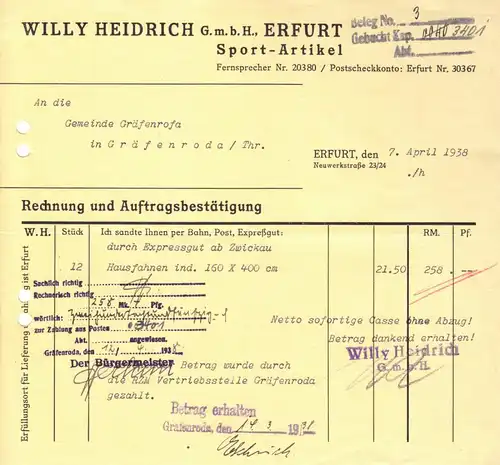 WILLY HEIDRICH G.m.b.H., ERFURT
Sport-Artikel
Fernsprecher Nr. 20380 / Postscheckkonto: Erfurt Nr. 30367
Beleg No. 3
Gebucht Kap. 3401
Abt.
An die
Gemeinde Gräfenrofa
in Gräfenroda / Thr.
ERFURT, den 7. April 1938
Neuwerkstraße 23/24
./h
Rechnung und Auftragsbestätigung
W. H. Stück Ich sandte Ihnen per Bahn, Post, Expreßgut: RM. Pf.
durch Expressgut ab Zwickau
12 Hausfahnen ind. 160 X 400 cm 21.50 258 .---
Sachlich richtig
Rechnerisch richtig
258 Mk. Pfg.
wörtlich:
zur Zahlung aus Posten 3401
Abt. angewiesen.
Gräfenroda, 193
Der Bürgermeister
Netto sofortige Casse ohne Abzug!
Betrag dankend erhalten!
Willy Heidrich
G. m. b. H.
Betrag wurde durch
die RZM Vertriebsstelle Gräfenroda
gezahlt.
Betrag erhalten
Gräfenroda, den 193
Erfüllungsort für Lieferung ist Erfurt